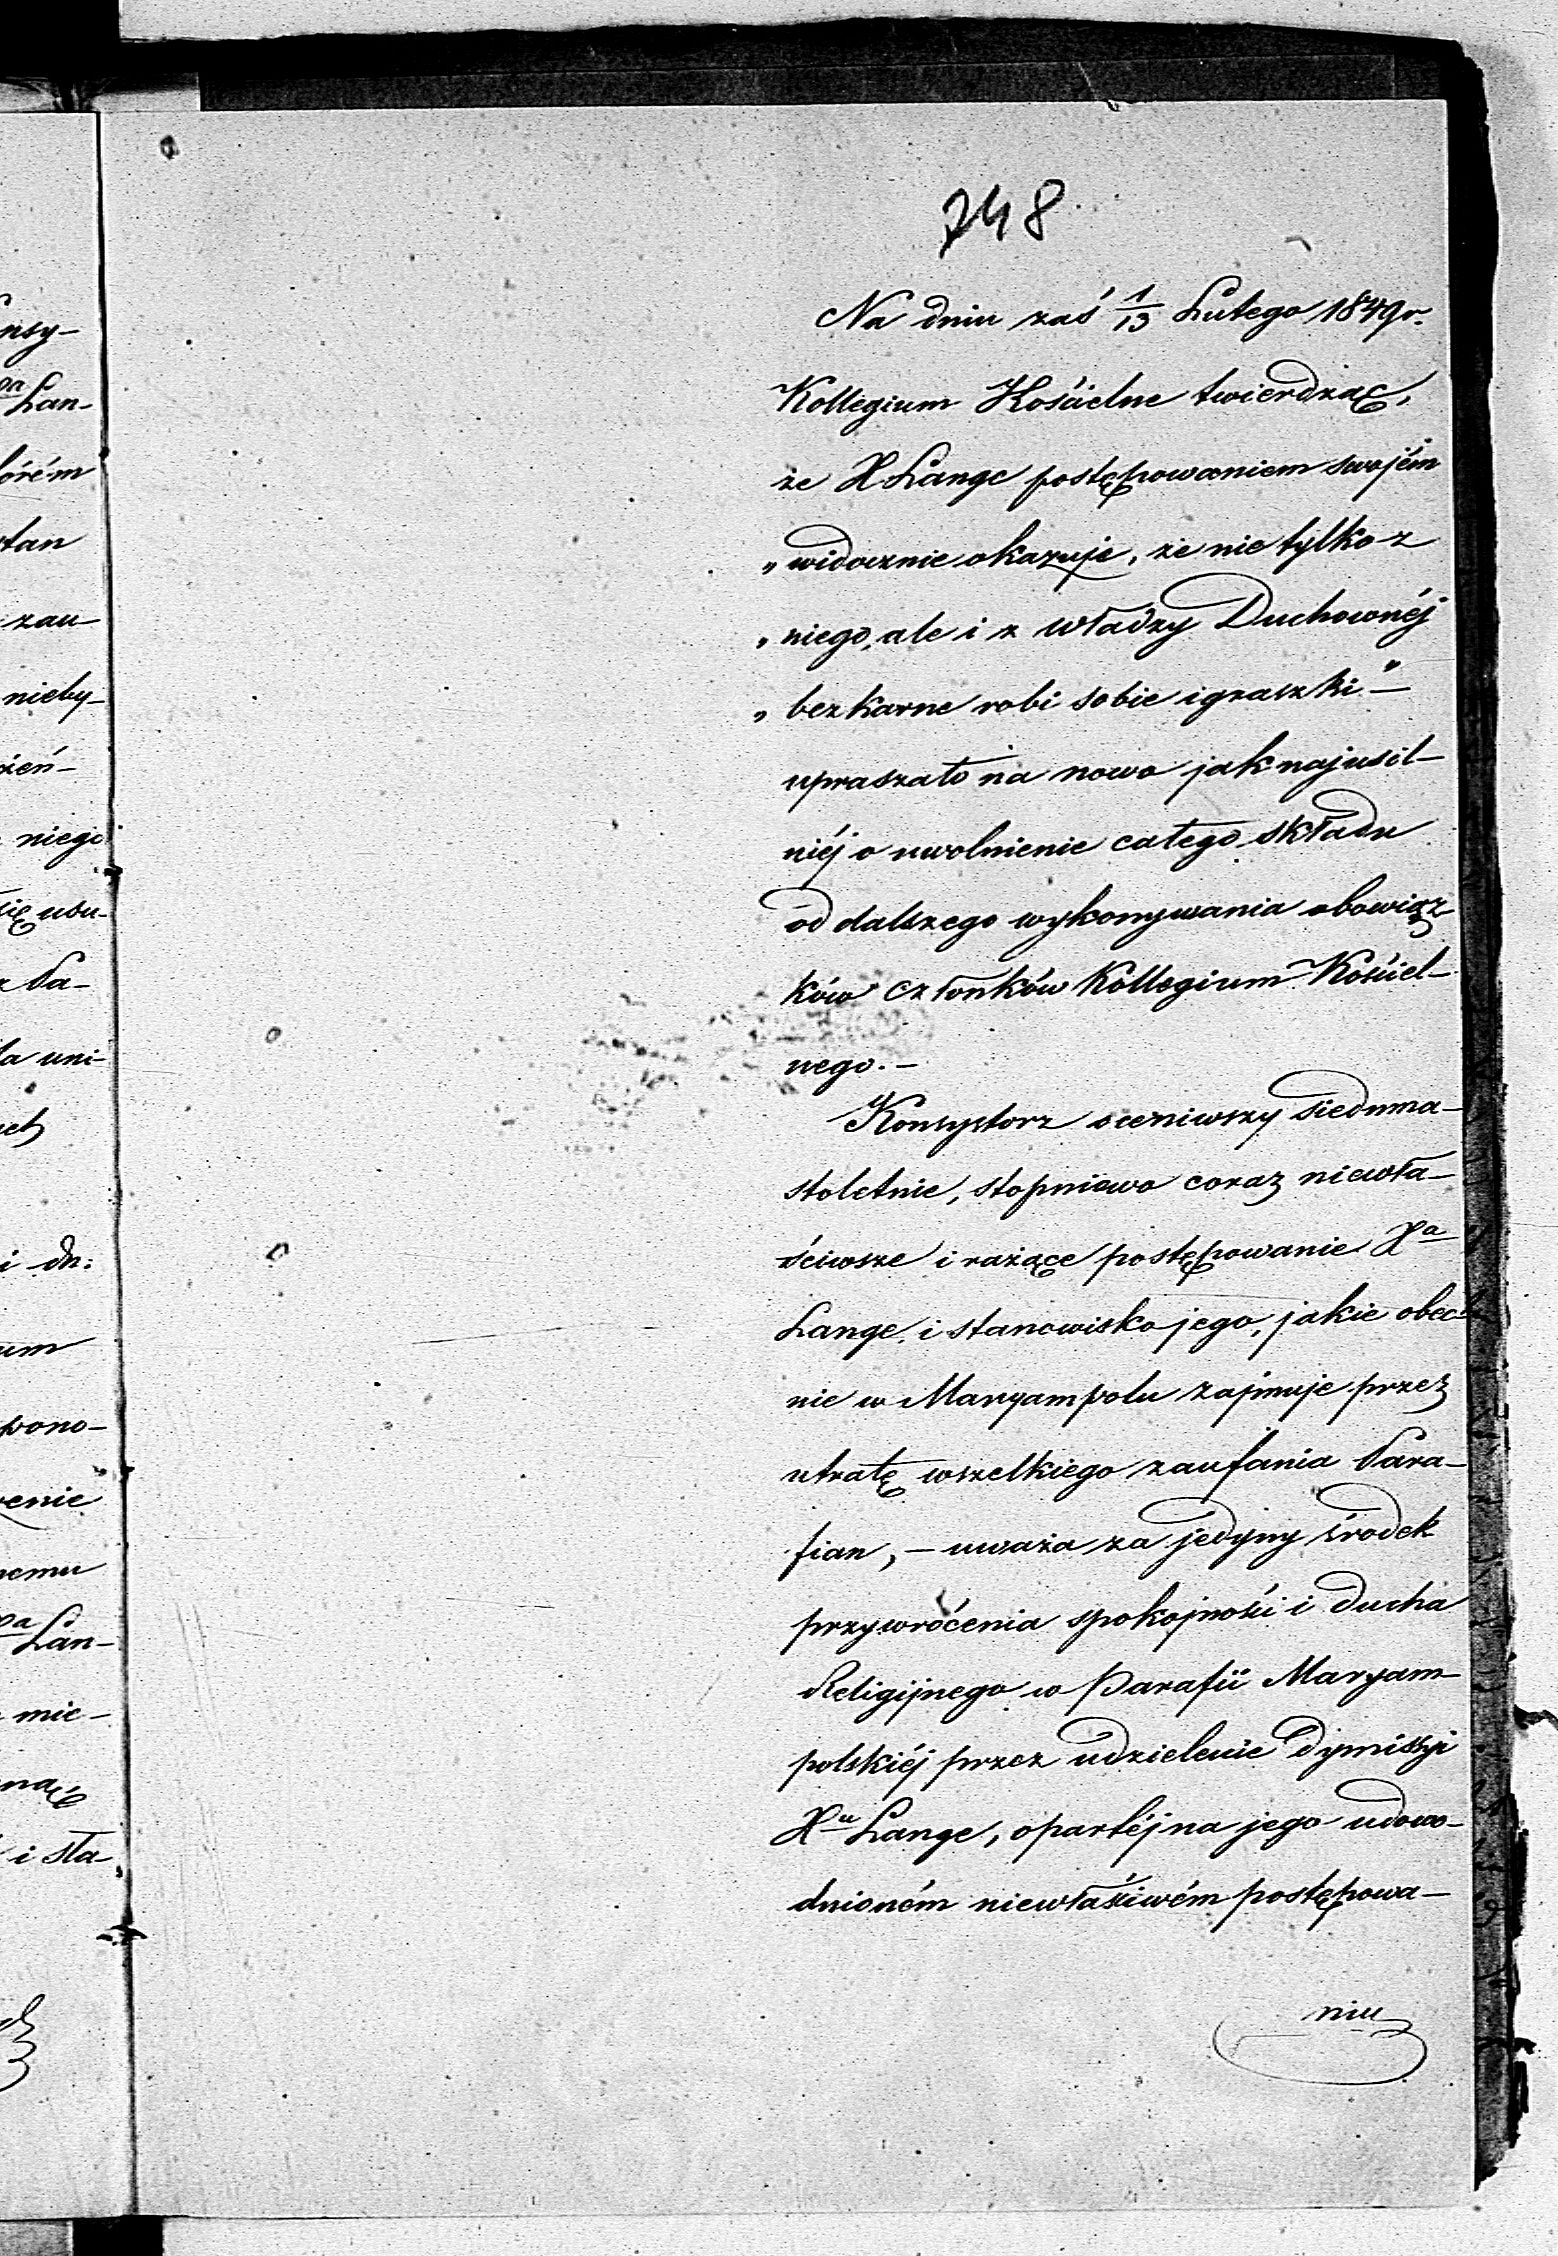 748
Na dniu zaś 1/13 Lutego 1849 r.
Kollegium Kościelne twierdząc,
że X Lange postępowaniem swojém
„widocznie okazuje, że nie tylko z
„niego, ale i z władzy Duchownéj
„bezkarne robi sobie igraszki" —
upraszało na nowo jak najusil-
niéj o uwolnienie całego składu
od dalszego wykonywania obowiąz
ków członków Kollegium Kościel-
nego. —
Konsystorz oceniwszy siedmna-
stoletnie, stopniowo coraz niewła-
ściwsze i rażące postępowanie Xa
Lange i stanowisko jego, jakie obec-
nie w Maryampolu zajmuje przez
utratę wszelkiego zaufania Para-
fian, — uważa za jedyny środek
przywrócenia spokojności i ducha
Religijnego w Parafii Maryam-
polskiéj przez udzielenie dymissyi
Xu Lange, opartéj na jego udowo-
dnioném niewłaściwém postępowa-
niu
nsy-
Lan-
tórém
stan
zau-
nieby-
zień-
niego
się usu-
Pa-
ła uni-
i dn:
um
pono-
zenie
nemu
Lan-
mie-
nać
i sta-